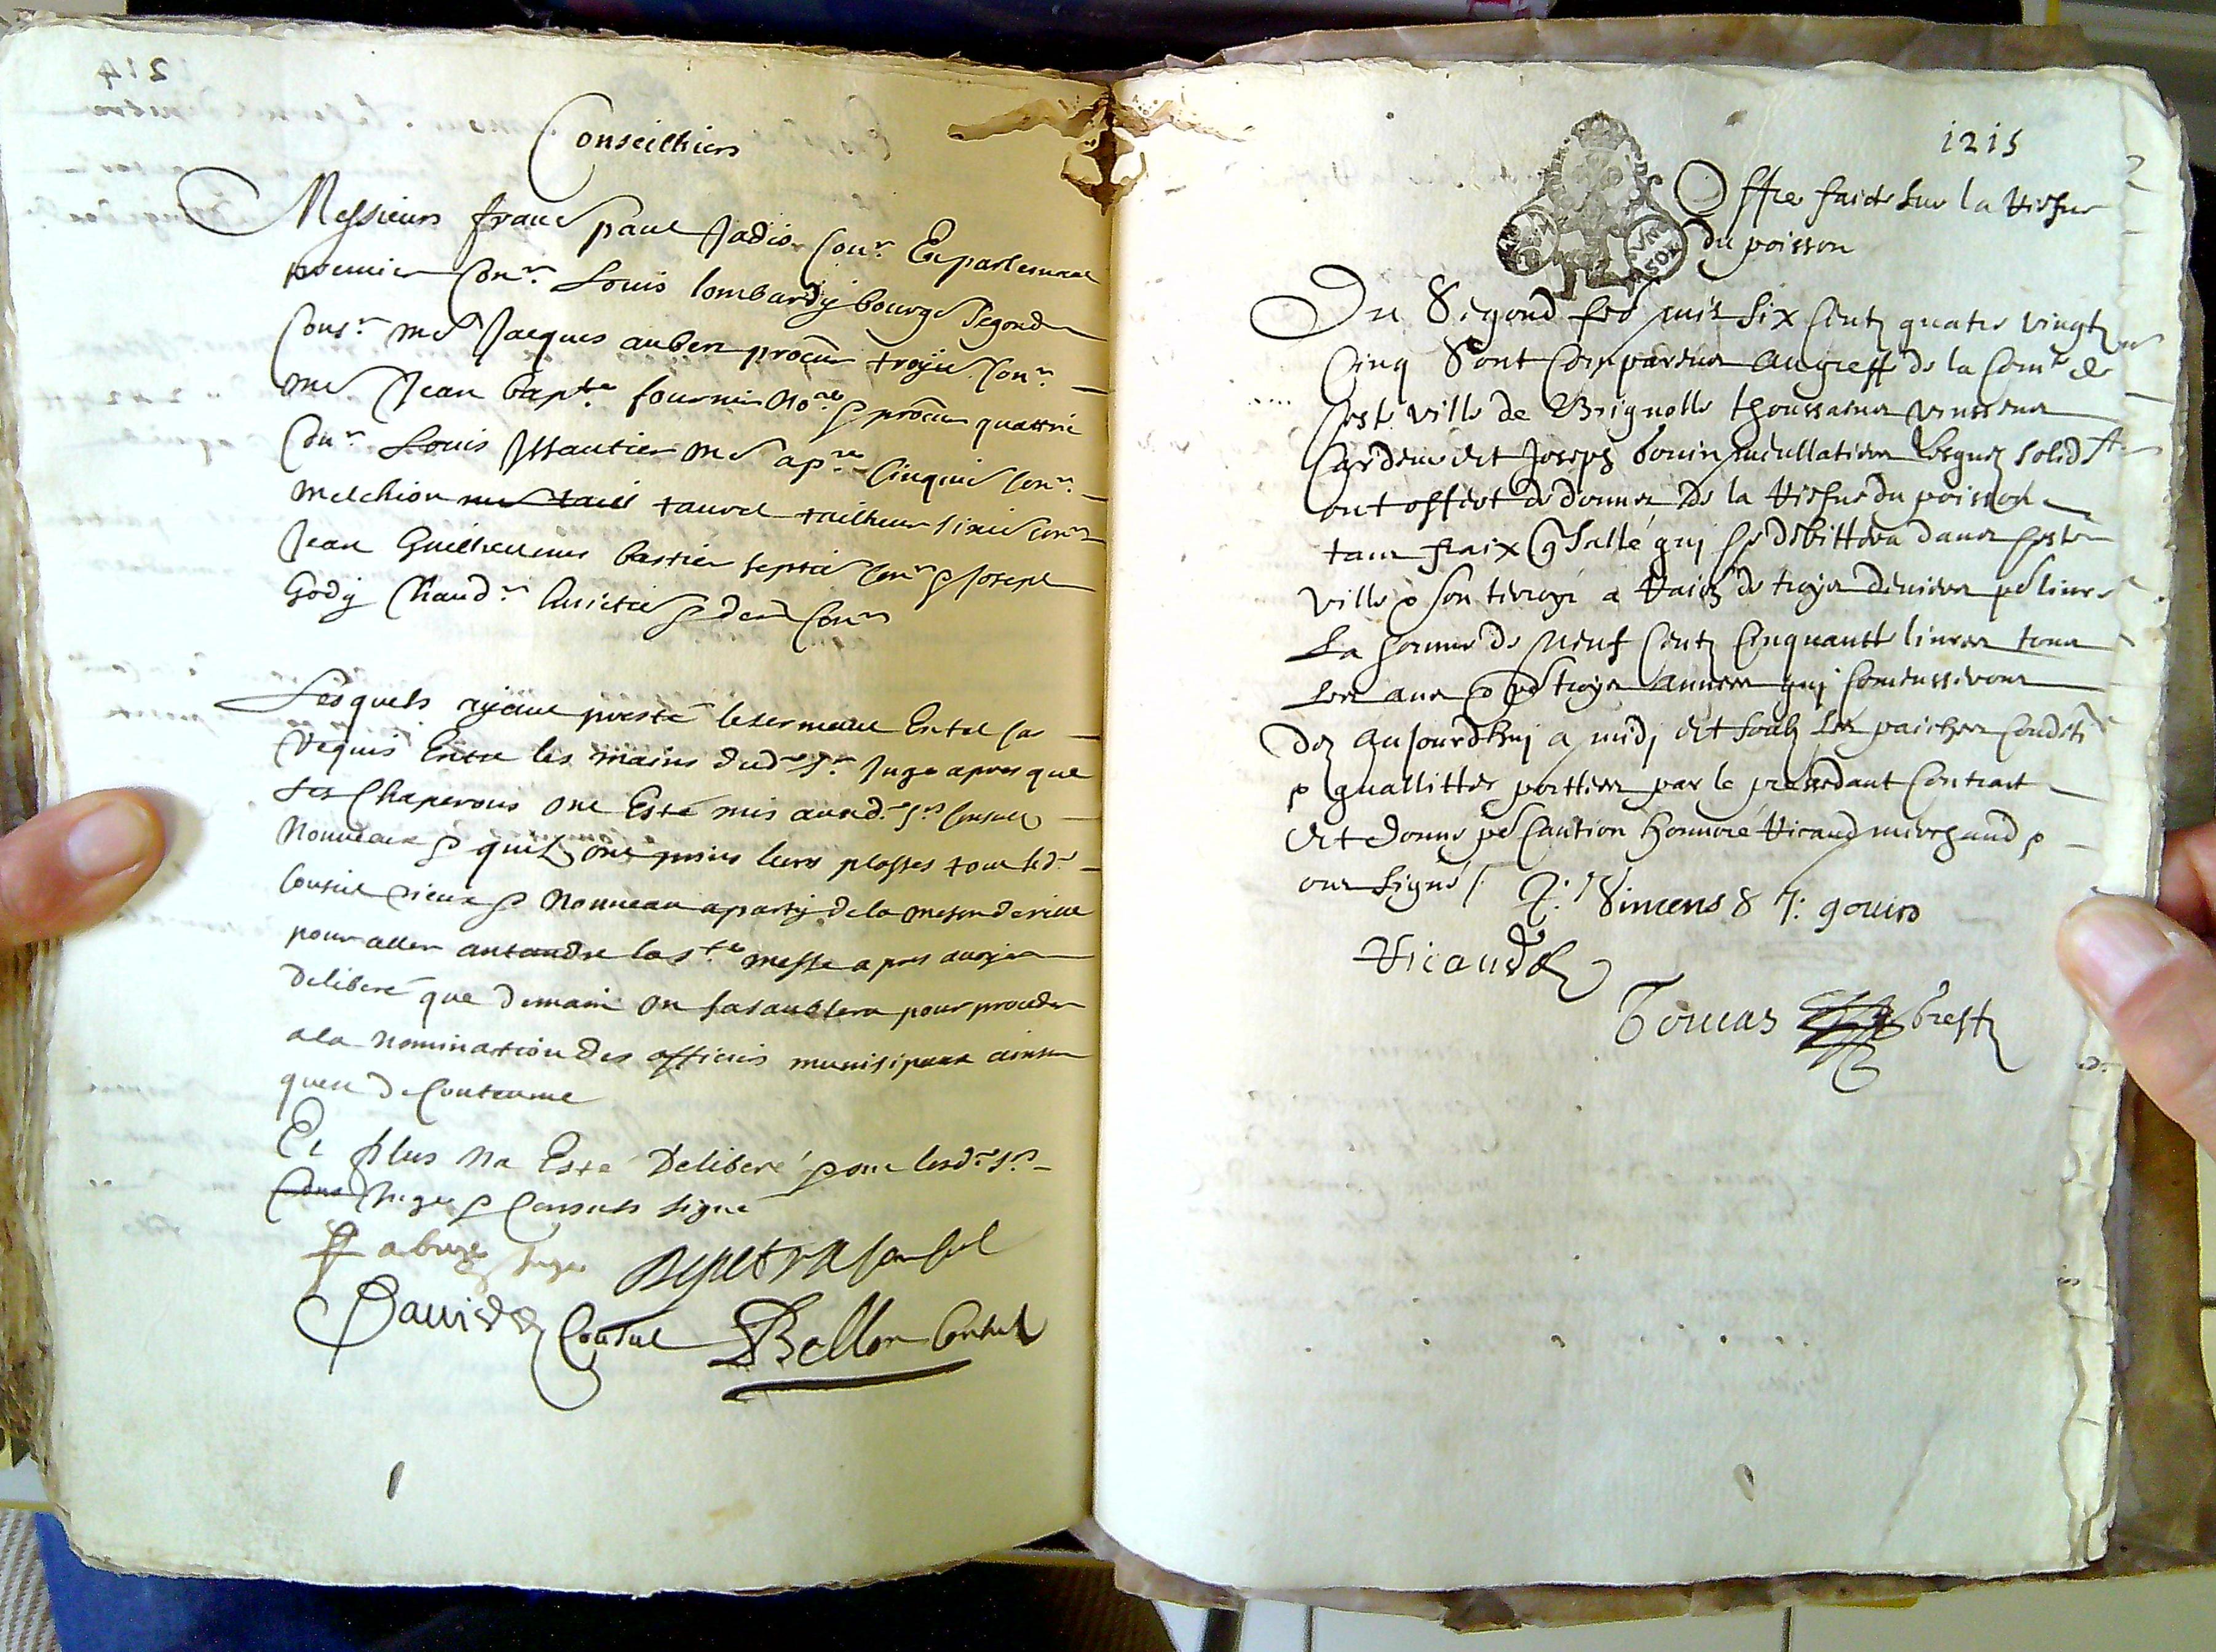 Conseilhiers
Messieurs franc paul Jadis Con.r En parlement
premier Con.r Louis lombardy bourg.s Segond
Cons.r m.e Jacques auben procur troizie Con.r
m.e Jean bap.te fournier no.re & procur quattrie
Con.r Louis Jssautier m.e ap.re Cinquie Con.r
Melchion tauvel tailheur sixie con.r
Jean Guilheaumes bastier septie Con.r & Joseph
Gody Chaud.r huictie & der Con.r
Lesquels ayant presté le serment En tel cas
Requis Entre les mains dud. s.r Juge apres que
Les Chaperons ont Esté mis auxd. s.rs Consuls
Nouveaux & quilz ont prins leurs plasses tout led.
Conseil vieux & Nouveau a party de la meson de ville
pour aller antandre la s.te messe apres avoyer
Deliberé que demain on sasamblera pour proceder
a la nomination des officiers munisipaux ainsin
quest de Coutteume
Et plus na Esté Deliberé & ont lesd. s.rs
Juge & Consuls signé
Juge Consul
David Consul Bellon Consul
1215
Offre faicte sur la Viesne
du poisson
Du Segond feb mil six Centz quatre vingtz
Cinq Sont Comparens au greff de la Com.té de
Ceste ville de Brignolle thoussaint vinssens
Cardeur et Joseph bouin mullatier Lesquelz solid.t
ont offert de donner de la du poisson
tant fraix que sallé qui se debittera dans Ceste
ville & son tiroyr a de troyes deniers p.r livre
La somme de Neuf Centz Cinquante livres tour
Les ans & p.r troyes années qui Comenssevont
Dez aujourdhuy a midj et soubz les paiches Condit.
& quallittés porttées par le presedant Contract
et donne p.r Caution honnoré Vicaud marchand &
ont signé /. T: Vinsens J: gouin
Vicaud
Toucas greff